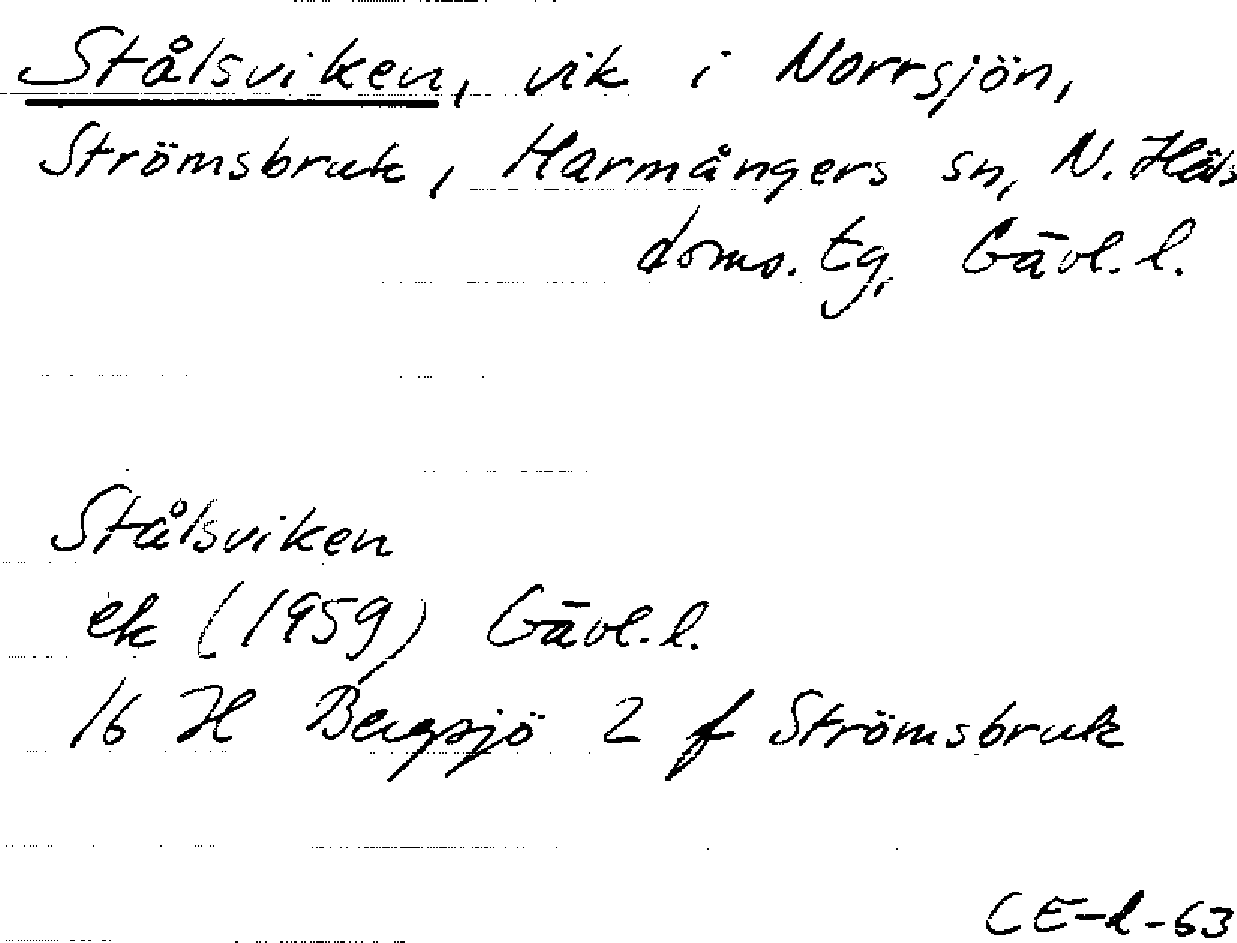 Stålsviken, vik i Norrsjön,
Strömsbruk, Harmångers sn, N. Häls
doms. tg, Gävl. l.
Stålsviken
ek (1959) Gävl. l.
16 H Bergsjö 2 f Strömsbruk
CE-l-63